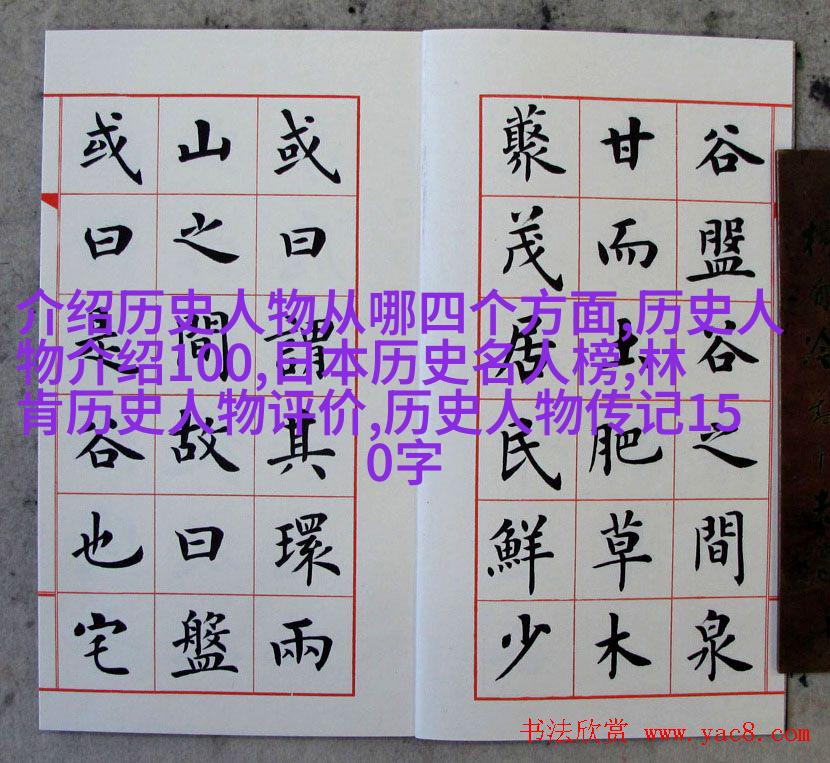 谷盤谷之間泉
甘而土肥草木
藂茂居民鮮少
或曰謂其環兩
山之間故曰盤
或曰是谷也宅
介绍历史人物从哪四个方面,历史人
物介绍100,日本历史名人榜,林
肯历史人物评价,历史人物传记15
0字
书法欣赏 www.yac8.com